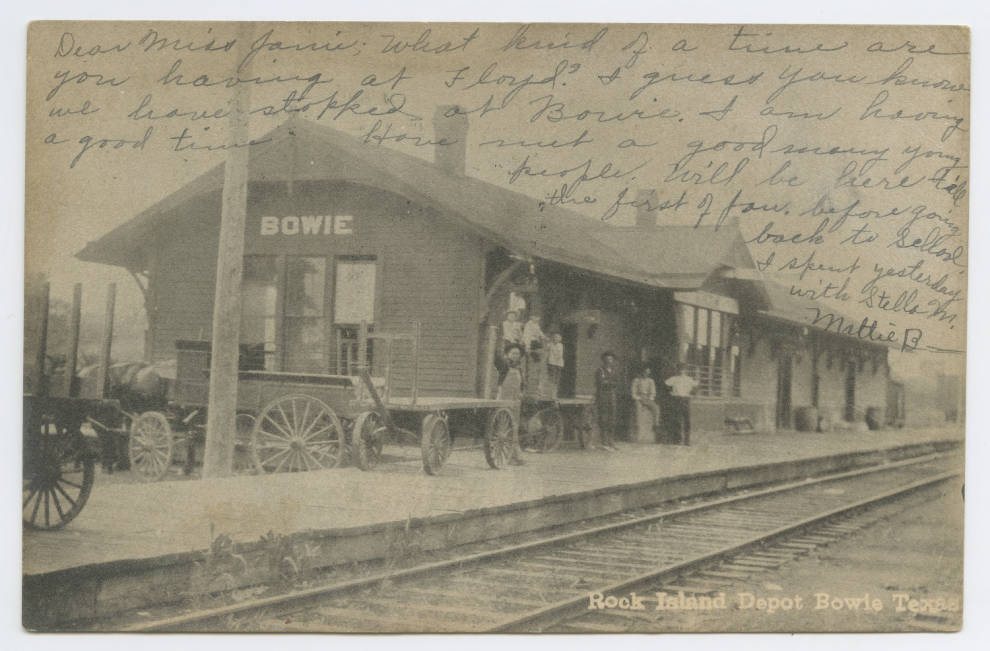 Dear Miss Janie; What kind of a time are
you having at Floyd? I guess you know
we have stopped at Bowie. I am having
a good time. Have met a good many young
people. Will be here till
the first of Jan. before going
back to School.
I spent yesterday
with Stella M.
Mattie B
BOWIE
Rock Island Depot Bowie Texas